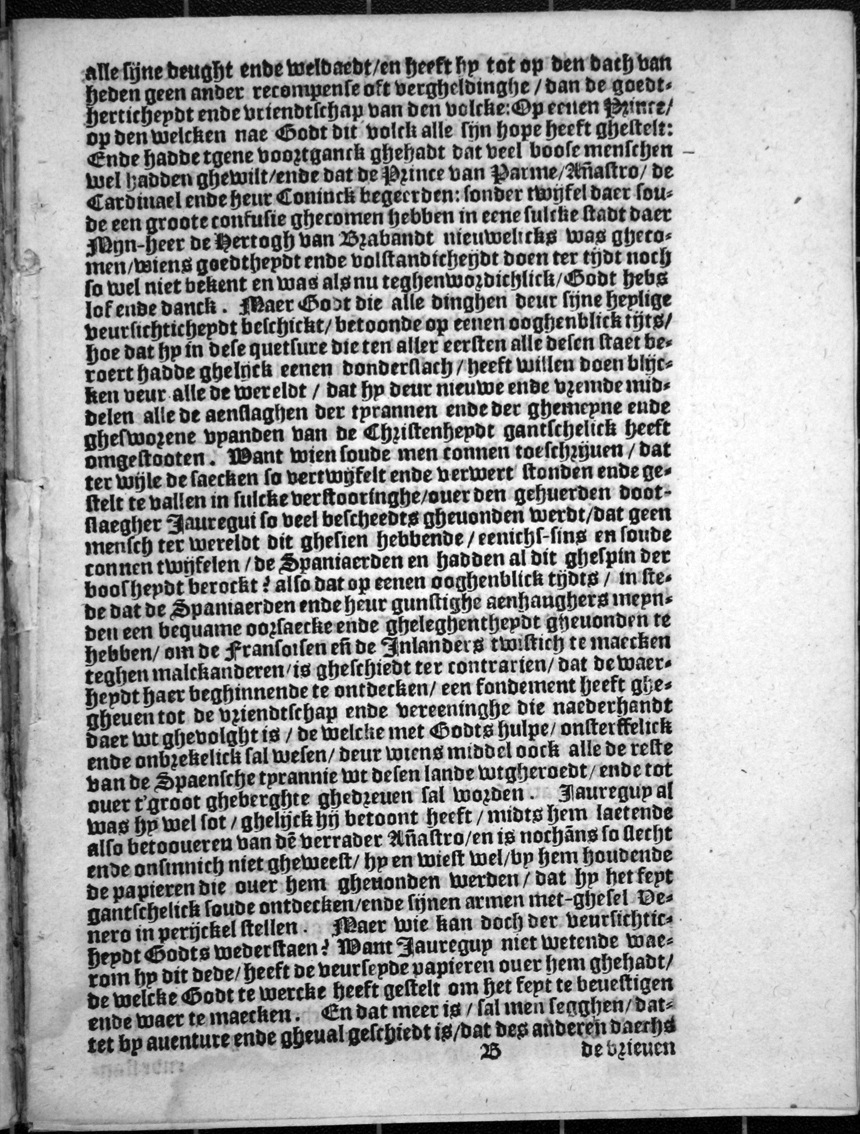 alle sijne deught ende weldaedt/en heeft hy tot op den dach van
heden geen ander recompense oft vergheldinghe / dan de goedt-
herticheydt ende vriendtschap van den volcke: Op eenen Prince/
op den welcken nae Godt dit volck alle sijn hope heeft ghestelt:
Ende hadde tgene voortganck ghehadt dat veel boose menschen
wel hadden ghewilt/ende dat de Prince van Parme/Añastro/ de
Cardinael ende heur Coninck begeerden: sonder twijfel daer sou-
de een groote confusie ghecomen hebben in eene sulcke stadt daer
Mijn-heer de Hertogh van Brabandt nieuwelicks was gheco-
men/wiens goedtheydt ende volstandicheijdt doen ter tijdt noch
so wel niet bekent en was als nu teghenwordichlick/Godt hebs
lof ende danck. Maer Godt die alle dinghen deur sijne heylige
veursichticheydt beschickt/ betoonde op eenen ooghenblick tijts/
hoe dat hy in dese quetsure die ten aller eersten alle desen staet be-
roert hadde ghelijck eenen donderslach/ heeft willen doen blijc-
ken veur alle de wereldt / dat hy deur nieuwe ende vremde mid-
delen alle de aenslaghen der tyrannen ende der ghemeyne ende
ghesworene vyanden van de Christenheydt gantschelick heeft
omgestooten. Want wien soude men connen toeschrijuen/ dat
ter wijle de saecken so vertwijfelt ende verwert stonden ende ge-
stelt te vallen in sulcke verstooringhe/ouer den gehuerden doot-
slaegher Jauregui so veel bescheedts gheuonden werdt/dat geen
mensch ter wereldt dit ghesien hebbende / eenichs-sins en soude
connen twijfelen / de Spaniaerden en hadden al dit ghespin der
boosheydt berockt? also dat op eenen ooghenblick tijdts / in ste-
de dat de Spaniaerden ende heur gunstighe aenhanghers meyn-
den een bequame oorsaecke ende gheleghentheydt gheuonden te
hebben/ om de Fransoisen eñ de Inlanders twistich te maecken
teghen malckanderen/is gheschiedt ter contrarien/ dat de waer-
heydt haer beghinnende te ontdecken/ een fondement heeft ghe-
gheuen tot de vriendtschap ende vereeninghe die naederhandt
daer wt ghevolght is / de welcke met Godts hulpe/ onsterffelick
ende onbrekelick sal wesen/ deur wiens middel oock alle de reste
van de Spaensche tyrannie wt desen lande wtgheroedt/ ende tot
ouer t'groot gheberghte ghedreuen sal worden. Jaureguy al
was hy wel sot / ghelijck hij betoont heeft / midts hem laetende
also betooueren van dē verrader Añastro/en is nochãns so slecht
ende onsinnich niet gheweest/ hy en wist wel/by hem houdende
de papieren die ouer hem gheuonden werden/ dat hy het feyt
gantschelick soude ontdecken/ende sijnen armen met-ghesel Ve-
nero in perijckel stellen. Maer wie kan doch der veursichtic-
heydt Godts wederstaen? Want Jaureguy niet wetende wae-
rom hy dit dede/ heeft de veurseyde papieren ouer hem ghehadt/
de welcke Godt te wercke heeft gestelt om het feyt te beuestigen
ende waer te maecken. En dat meer is / sal men segghen/ dat-
tet by auenture ende gheual geschiedt is/dat des anderen daechs
B de brieuen